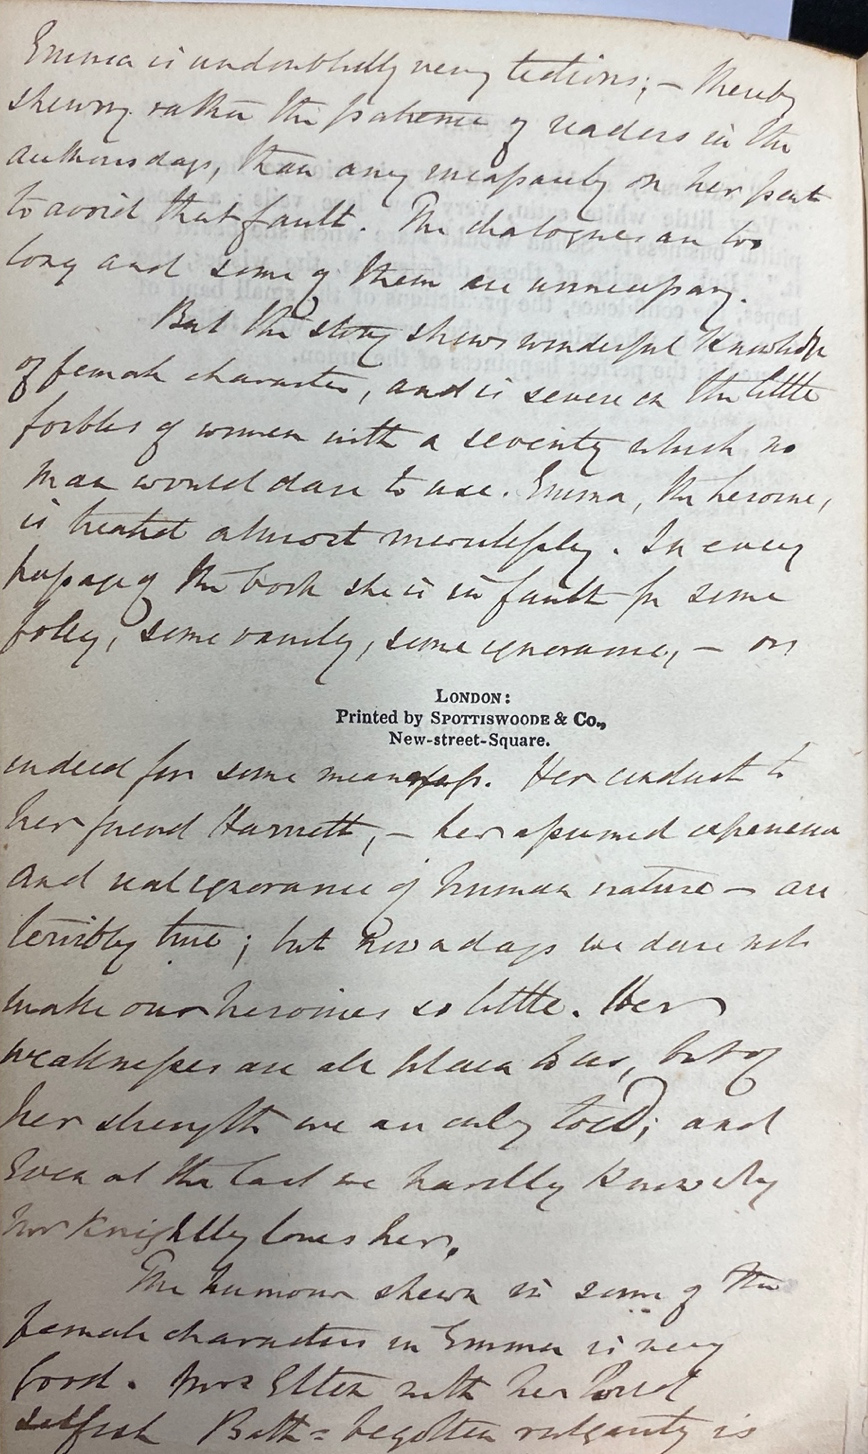 Emma is undoubtedly very tedious; – thereby
shewing rather the patience of readers in the
authors days, than any incapacity on her part
to avoid that fault. The dialogues are too
long and some of them are unnecessary.
But the story shews wonderful knowledge
of female character, and is severe on the little
foibles of women with a severity which no
man would dare to use. Emma, the heroine,
is treated almost mercilessly. In every
passage of the book she is in fault for some
folly, some vanity, some ignorance, – or
LONDON:
Printed by SPOTTISWOODE & Co.,
New-street-Square.
indeed for some meanness. Her conduct to
her friend Harriett, – her assumed experience
and real ignorance of human nature – are
terribly true; but nowadays we dare not
make our heroines so little. Her
weaknesses are all plain to us, but of
her strength we are only told; and
even at the last we hardly know why
Mr Knightley loves her.
The humour shewn in some of the
female characters in Emma is very
good. Mrs Elton with her loud
selfish Bath-begotten vulgarity is